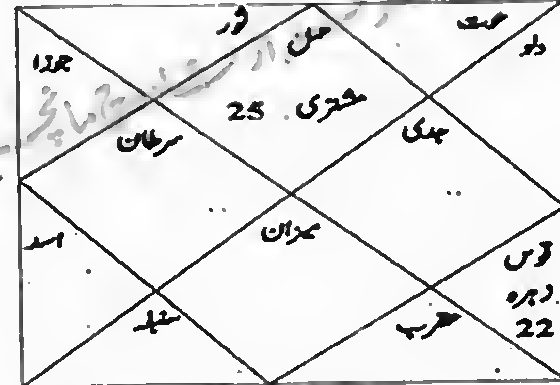 ثور
حمل
حوت
دلو
جوزا
مشتری 25
سرطان
جدی
اسد
میزان
قوس
زہرہ
22
سنبلہ
عقرب